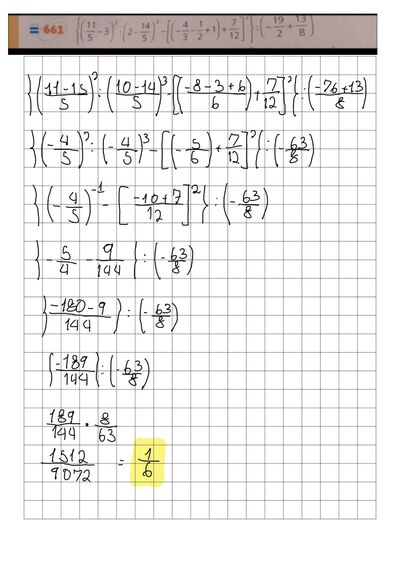 = 661 {(11/5 - 3)² : (2 - 14/5)³ - [(-4/3 - 1/2 + 1) + 7/12]²} : (-19/2 + 13/8)
{(11-15/5)² : (10-14/5)³ - [(-8-3+6/6) + 7/12]²} : (-76+13/8)
{(-4/5)² : (-4/5)³ - [(-5/6) + 7/12]²} : (-63/8)
{(-4/5)⁻¹ - [-10+7/12]²} : (-63/8)
{-5/4 - 9/144} : (-63/8)
{-180-9/144} : (-63/8)
{-189/144} : (-63/8)
189/144 · 8/63
1512/9072 = 1/6